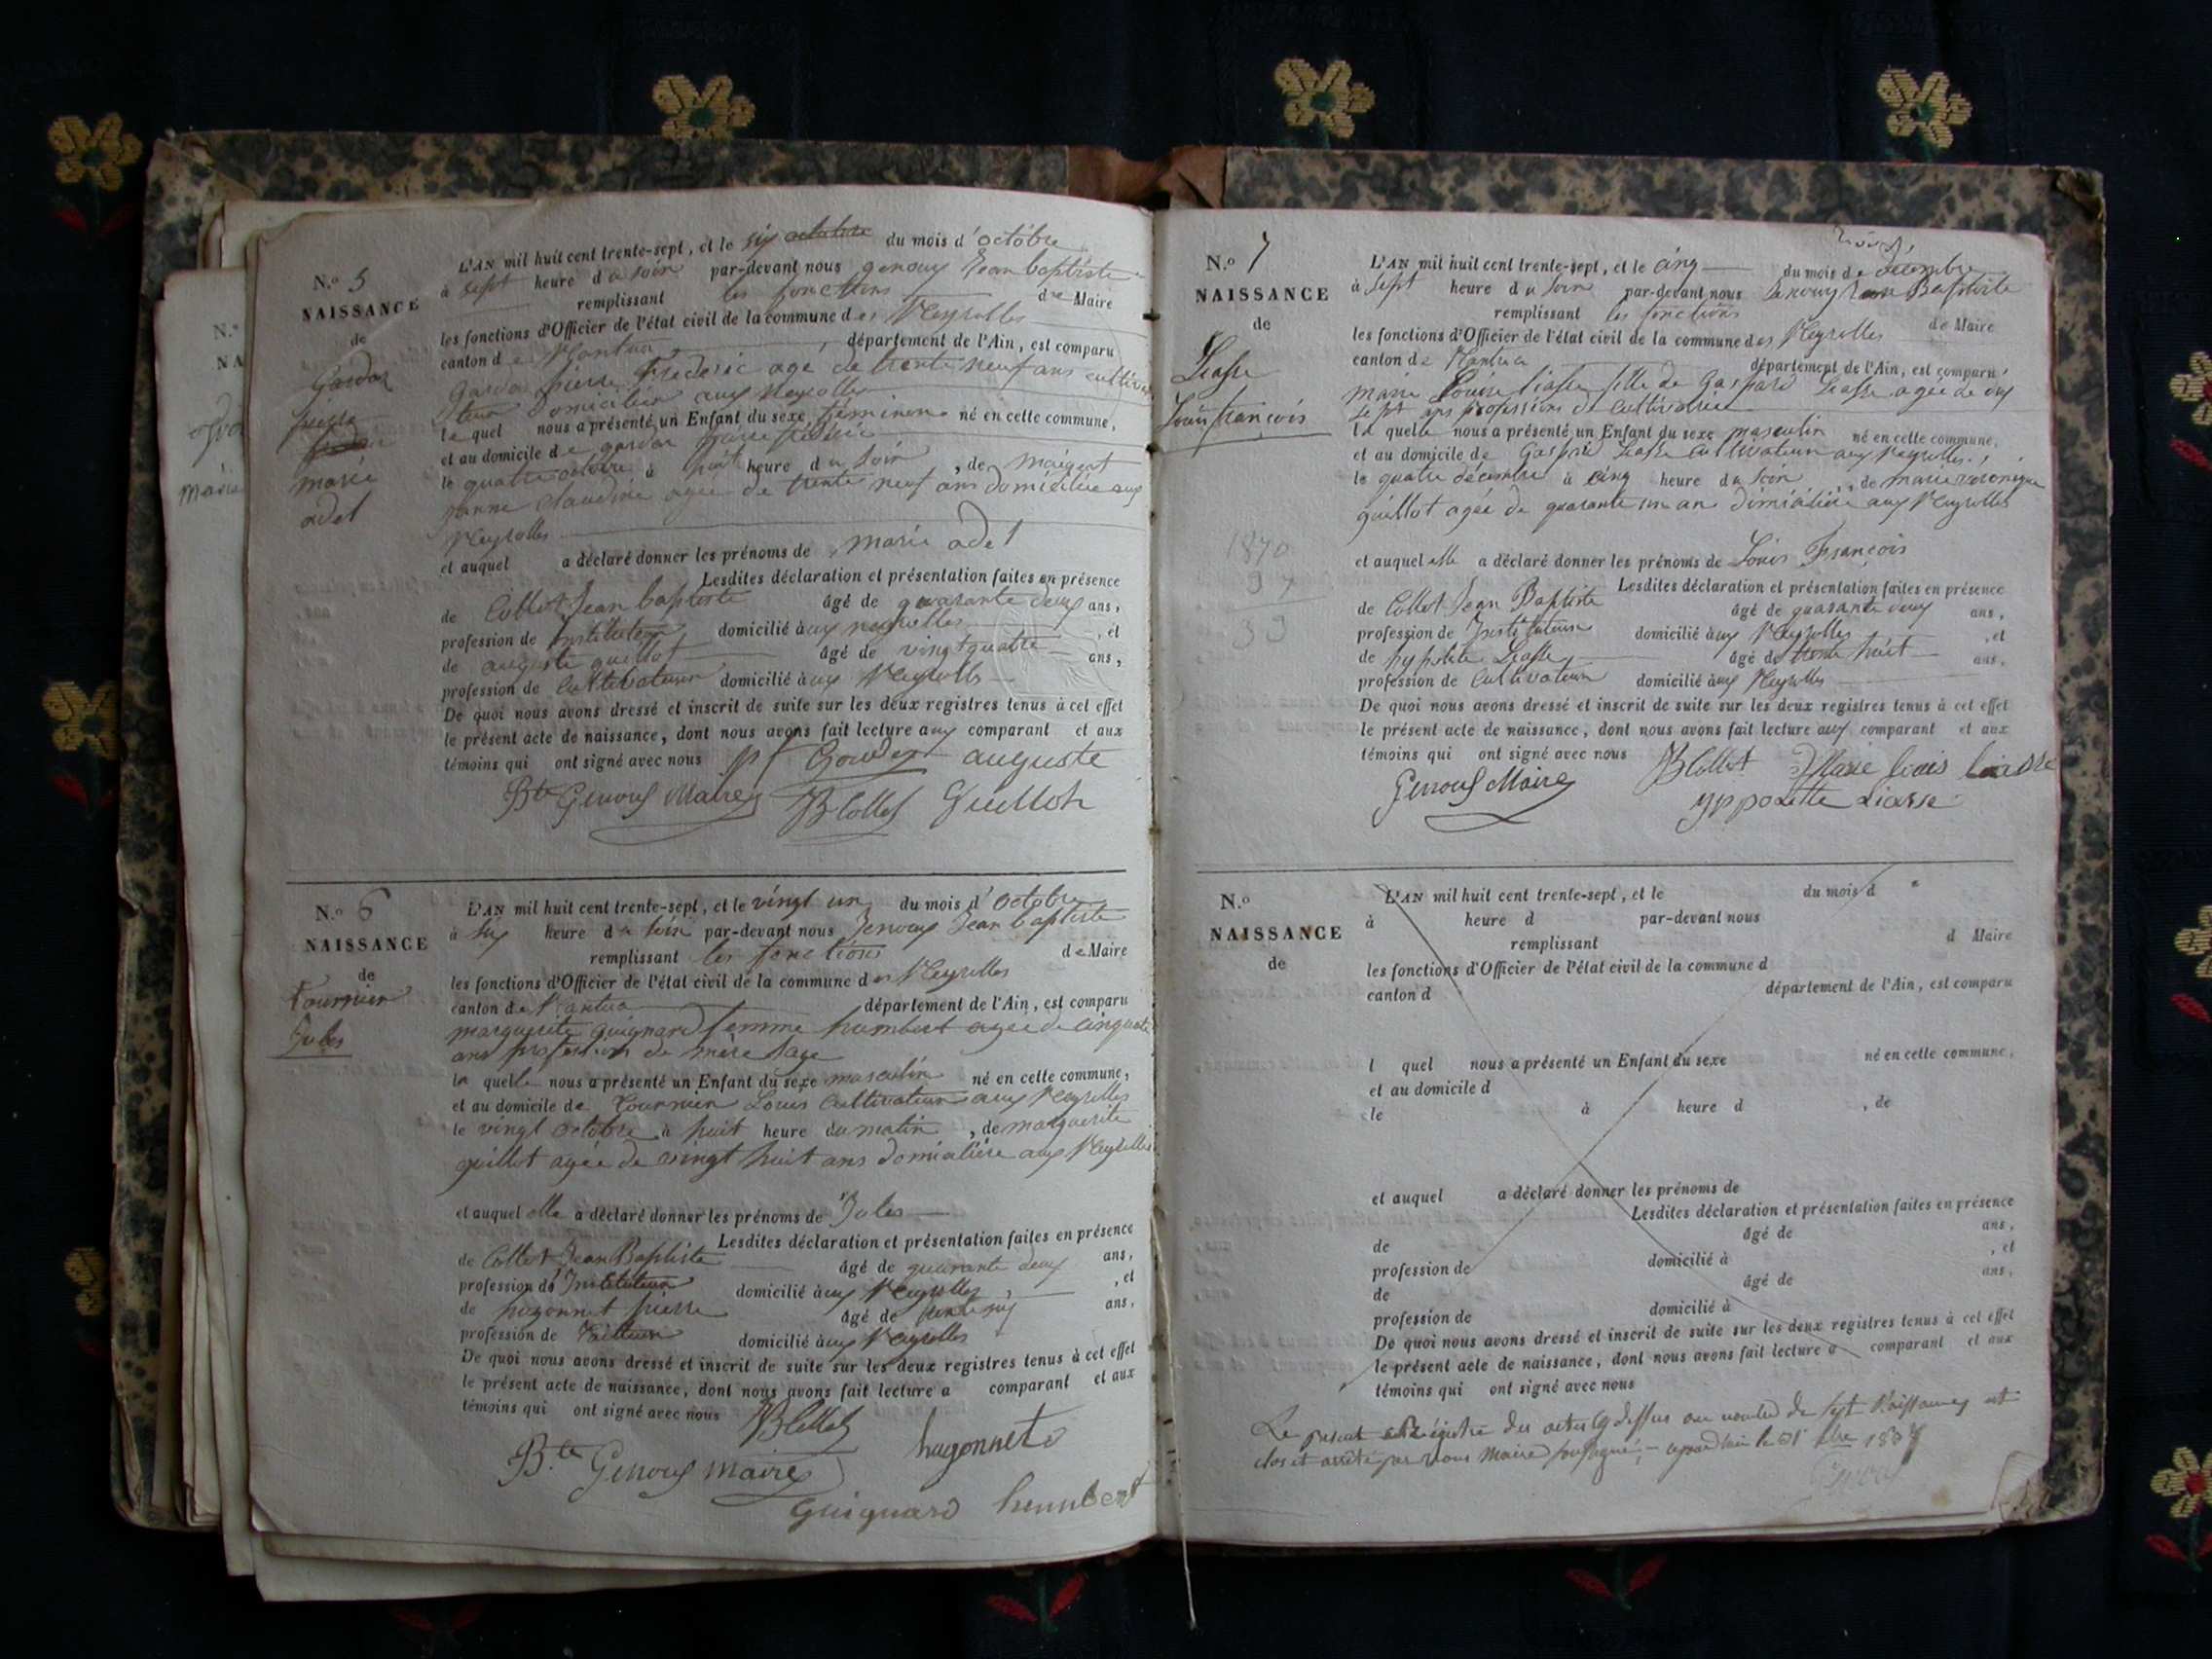 N.o 5
NAISSANCE
de
Gardar
pierre
marie
adel
L'AN mil huit cent trente-sept, et le six octobre du mois d'octobre
à sept heure du soir par-devant nous genoux Jean baptiste
remplissant les fonctions de Maire
les fonctions d'Officier de l'état civil de la commune des Neyrolles
canton de Nantua, département de l'Ain, est comparu
pierre frederic agé de trente neuf ans cultiva
teur domicilié aux Neyrolles
le quel nous a présenté un Enfant du sexe féminin né en cette commune,
et au domicile de
le quatre octobre à huit heure du soir, de
janne claudine agée de trente neuf ans domiciliée aux
Neyrolles
et auquel a déclaré donner les prénoms de marie adel
Lesdites déclaration et présentation faites en présence
de Collet Jean baptiste âgé de quarante deux ans,
profession de instituteur domicilié aux neyrolles, et
de auguste guillot âgé de vingt quatre ans,
profession de Cultivateur domicilié aux Neyrolles
De quoi nous avons dressé et inscrit de suite sur les deux registres tenus à cet effet
le présent acte de naissance, dont nous avons fait lecture aux comparant et aux
témoins qui ont signé avec nous auguste
Bte Genoux Maire JBCollet Guillot
N.o 6
NAISSANCE
de
Tournier
Jules
L'AN mil huit cent trente-sept, et le vingt un du mois d'octobre
à six heure du soir par-devant nous Jenoux Jean baptiste
remplissant les fonctions de Maire
les fonctions d'Officier de l'état civil de la commune des Neyrolles
canton de Nantua département de l'Ain, est comparu
marguerite guignard femme humbert agée de cinquante
ans profession de mère sage
la quelle nous a présenté un Enfant du sexe masculin né en cette commune,
et au domicile de Tournier Louis Cultivateur aux Neyrolles
le vingt octobre à huit heure du matin, de marguerite
guillot agée de vingt huit ans domiciliée aux Neyrolles
et auquel elle a déclaré donner les prénoms de Jules
Lesdites déclaration et présentation faites en présence
de Collet Jean Baptiste âgé de quarante deux ans,
profession de Instituteur domicilié aux Neyrolles, et
de hugonnet pierre âgé de trente six ans,
profession de Tailleur domicilié aux Neyrolles
De quoi nous avons dressé et inscrit de suite sur les deux registres tenus à cet effet
le présent acte de naissance, dont nous avons fait lecture a comparant et aux
témoins qui ont signé avec nous JBCollet
Bte Genoux maire hugonnet
Guignard humbert
N.o 7
NAISSANCE
de
Liasse
Louis françois
1870
37
33
L'AN mil huit cent trente-sept, et le cinq du mois de décembre
à sept heure du soir par-devant nous Genoux Jean Baptiste
remplissant les fonctions de Maire
les fonctions d'Officier de l'état civil de la commune des Neyrolles
canton de Nantua département de l'Ain, est comparu
marie Louise liasse fille de Gaspard Liasse agée de dix
sept ans profession de Cultivatrice
la quelle nous a présenté un Enfant du sexe masculin né en cette commune,
et au domicile de Gaspard Liasse Cultivateur aux Neyrolles,
le quatre décembre à cinq heure du soir, de marie véronique
guillot agée de quarante un an domiciliée aux Neyrolles
et auquel elle a déclaré donner les prénoms de Louis François
Lesdites déclaration et présentation faites en présence
de Collet Jean Baptiste âgé de quarante deux ans,
profession de Instituteur domicilié aux Neyrolles, et
de hypolite Liasse âgé de trente huit ans,
profession de Cultivateur domicilié aux Neyrolles
De quoi nous avons dressé et inscrit de suite sur les deux registres tenus à cet effet
le présent acte de naissance, dont nous avons fait lecture aux comparant et aux
témoins qui ont signé avec nous JBCollet Marie liasse
Genoux Maire yppolitte Liasse
N.o
NAISSANCE
de
L'AN mil huit cent trente-sept, et le du mois d
à heure d par-devant nous
remplissant d Maire
les fonctions d'Officier de l'état civil de la commune d
canton d département de l'Ain, est comparu
l quel nous a présenté un Enfant du sexe né en cette commune,
et au domicile d
le à heure d, de
et auquel a déclaré donner les prénoms de
Lesdites déclaration et présentation faites en présence
de âgé de ans,
profession de domicilié à, et
de âgé de ans,
profession de domicilié à
De quoi nous avons dressé et inscrit de suite sur les deux registres tenus à cet effet
le présent acte de naissance, dont nous avons fait lecture a comparant et aux
témoins qui ont signé avec nous
Le présent registre des actes cy dessus au nombre de sept Naissances est
clos et arrêté par nous Maire soussigné, aujourd'hui le 31 Xbre 1837